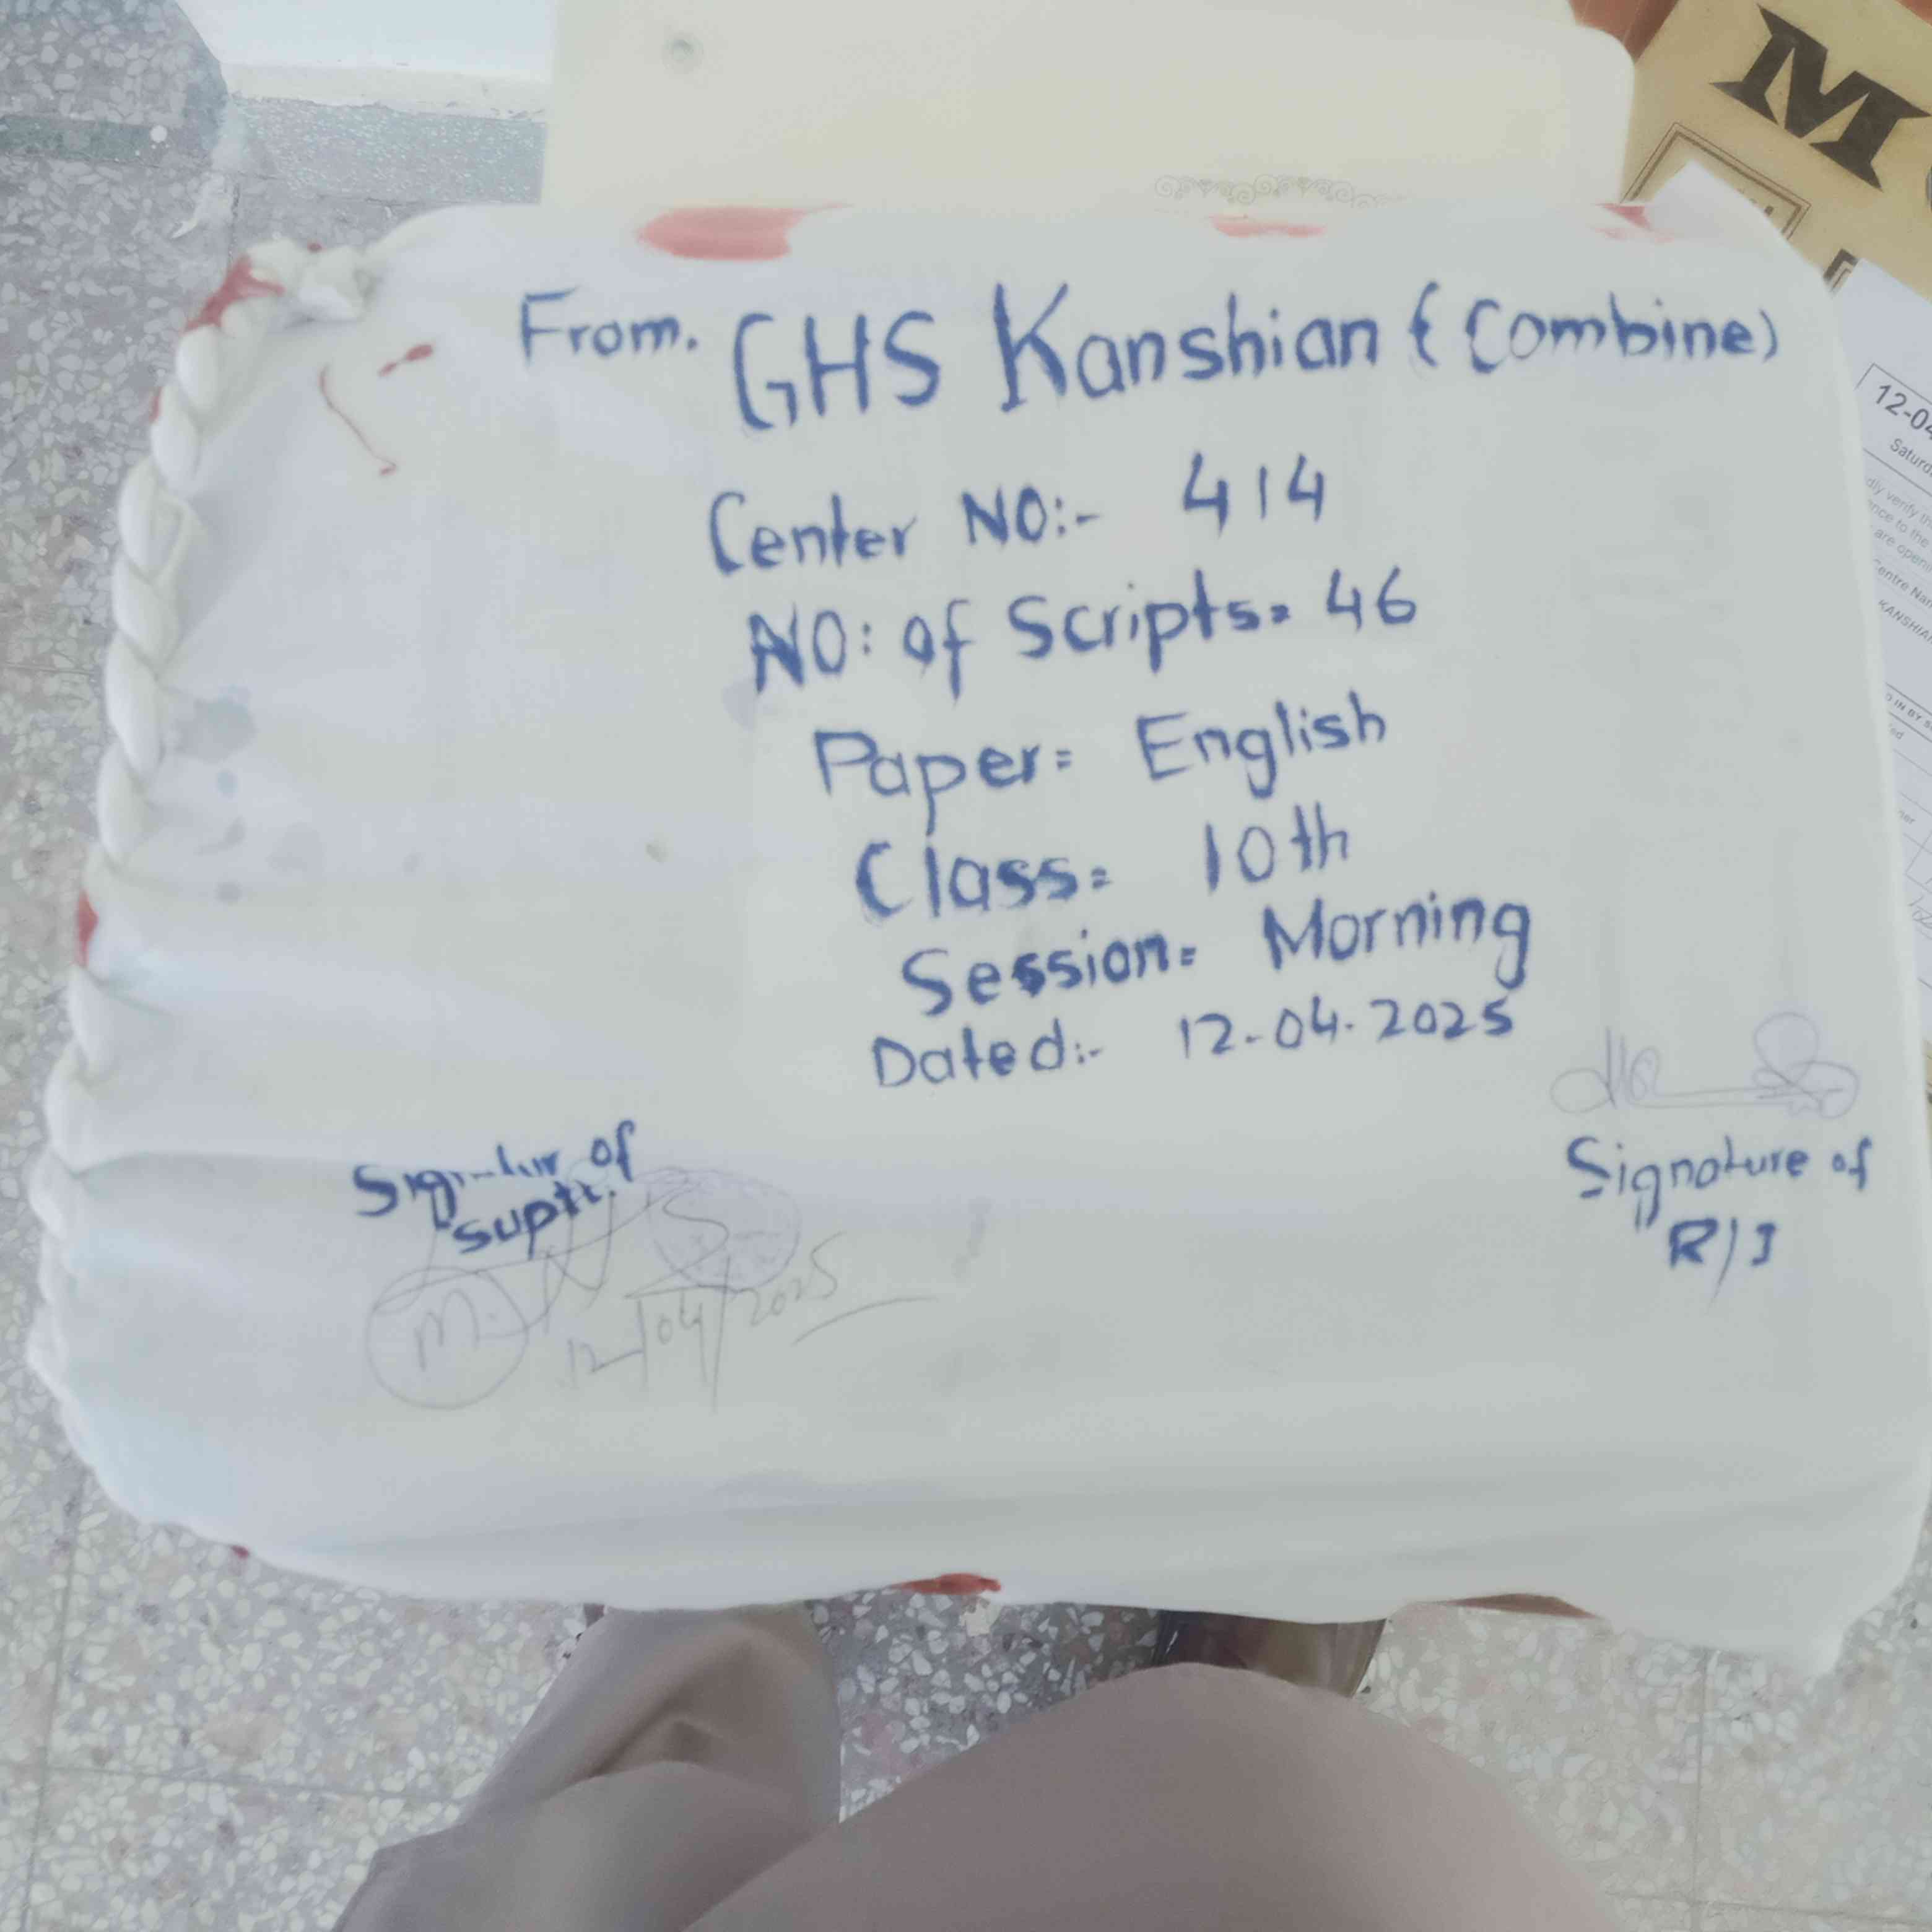 From. GHS Kanshian { Combine)
Center NO:- 414
NO: of Scripts= 46
Paper= English
Class= 10th
Session= Morning
Dated:- 12-04-2025
Signature of
R/I
of
Suptt.
12/04/2025
M
12-04
Saturd
dly verify th
nce to the
are openi
Centre Nam
KANSHIAN
D IN BY S